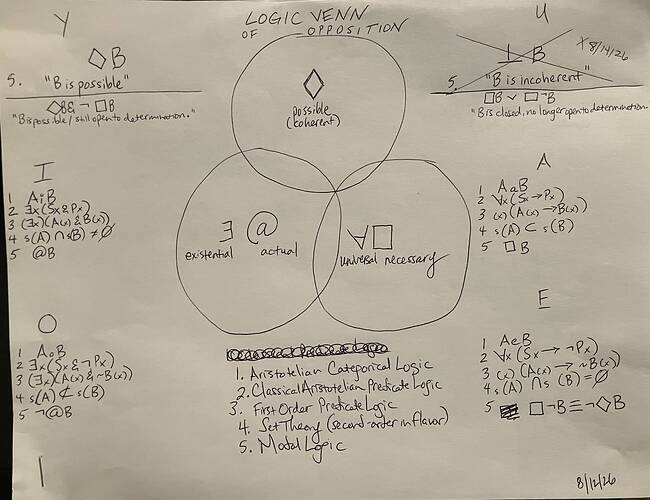 LOGIC VENN
OF OPPOSITION
Y
◇B
5. "B is possible"
◇B & ¬□B
"B is possible / still open to determination."
U
⊥ B
X 8/14/26
5. "B is incoherent"
□B ∨ □¬B
"B is closed, no longer open to determination.
◇
possible
(coherent)
∃ @
existential actual
∀□
universal necessary
I
1 AiB
2 ∃x(Sx & Px)
3 (∃x)(A(x) & B(x))
4 s(A) ∩ s(B) ≠ ∅
5 @B
A
1 AaB
2 ∀x(Sx → Px)
3 (x)(A(x) → B(x))
4 s(A) ⊂ s(B)
5 □B
O
1 AoB
2 ∃x(Sx & ¬Px)
3 (∃x)(A(x) & ~B(x))
4 s(A) ⊄ s(B)
5 ¬@B
E
1 AeB
2 ∀x(Sx → ¬Px)
3 (x)(A(x) → ~B(x))
4 s(A) ∩ s(B) = ∅
5 □¬B ≡ ¬◇B
1. Aristotelian Categorical Logic
2. Classical Aristotelian Predicate Logic
3. First Order Predicate Logic
4. Set Theory (second-order in flavor)
5. Modal Logic
8/12/26